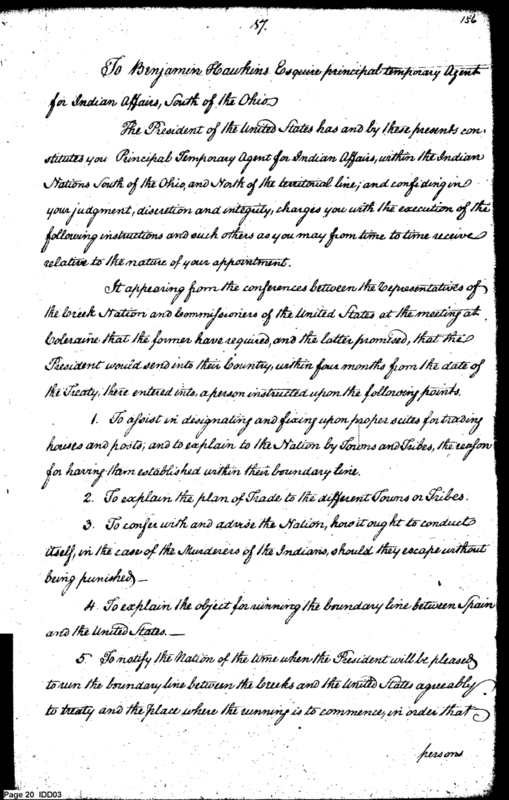 57.
156
To Benjamin Hawkins Esquire principal temporary Agent
for Indian Affairs, South of the Ohio
The President of the United States has and by these presents con-
stitutes you Principal Temporary Agent for Indian Affairs, within the Indian
Nations South of the Ohio, and North of the territorial line; and confiding in
your judgment, discretion and integrity, charges you with the execution of the
following instructions and such others as you may from time to time receive
relative to the nature of your appointment.
It appearing from the conferences between the Representatives of
the Creek Nation and Commissioners of the United States at the meeting at
Coleraine that the former have required, and the latter promised, that the
President would send into their Country, within four months from the date of
the Treaty, there entered into, a person instructed upon the following points.
1. To assist in designating and fixing upon proper suites for trading
houses and posts; and to explain to the Nation by Towns and Tribes, the reason
for having them established within their boundary line.
2. To explain the plan of Trade to the different Towns or Tribes.
3. To confer with and advise the Nation, how it ought to conduct
itself, in the case of the Murderers of the Indians, should they escape without
being punished—
4. To explain the object for running the boundary line between Spain
and the United States.—
5. To notify the Nation of the time when the President will be pleased
to run the boundary line between the Creeks and the United States agreeably
to treaty and the place where the running is to commence, in order that
persons
Page 20 IDD03